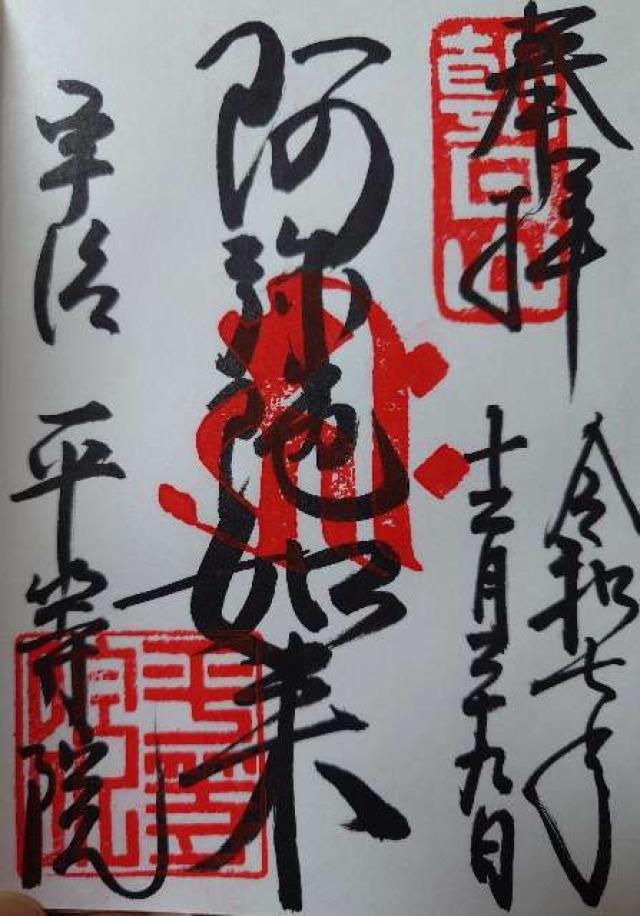 奉拝
朝日山
令和七年
十二月二十九日
阿弥陀如来
宇治 平等院